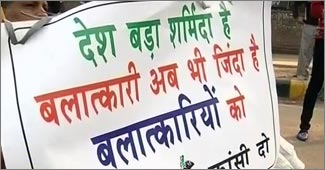 देश बड़ा शर्मिंदा है
बलात्कारी अब भी जिंदा है
बलात्कारियों को
फांसी दो